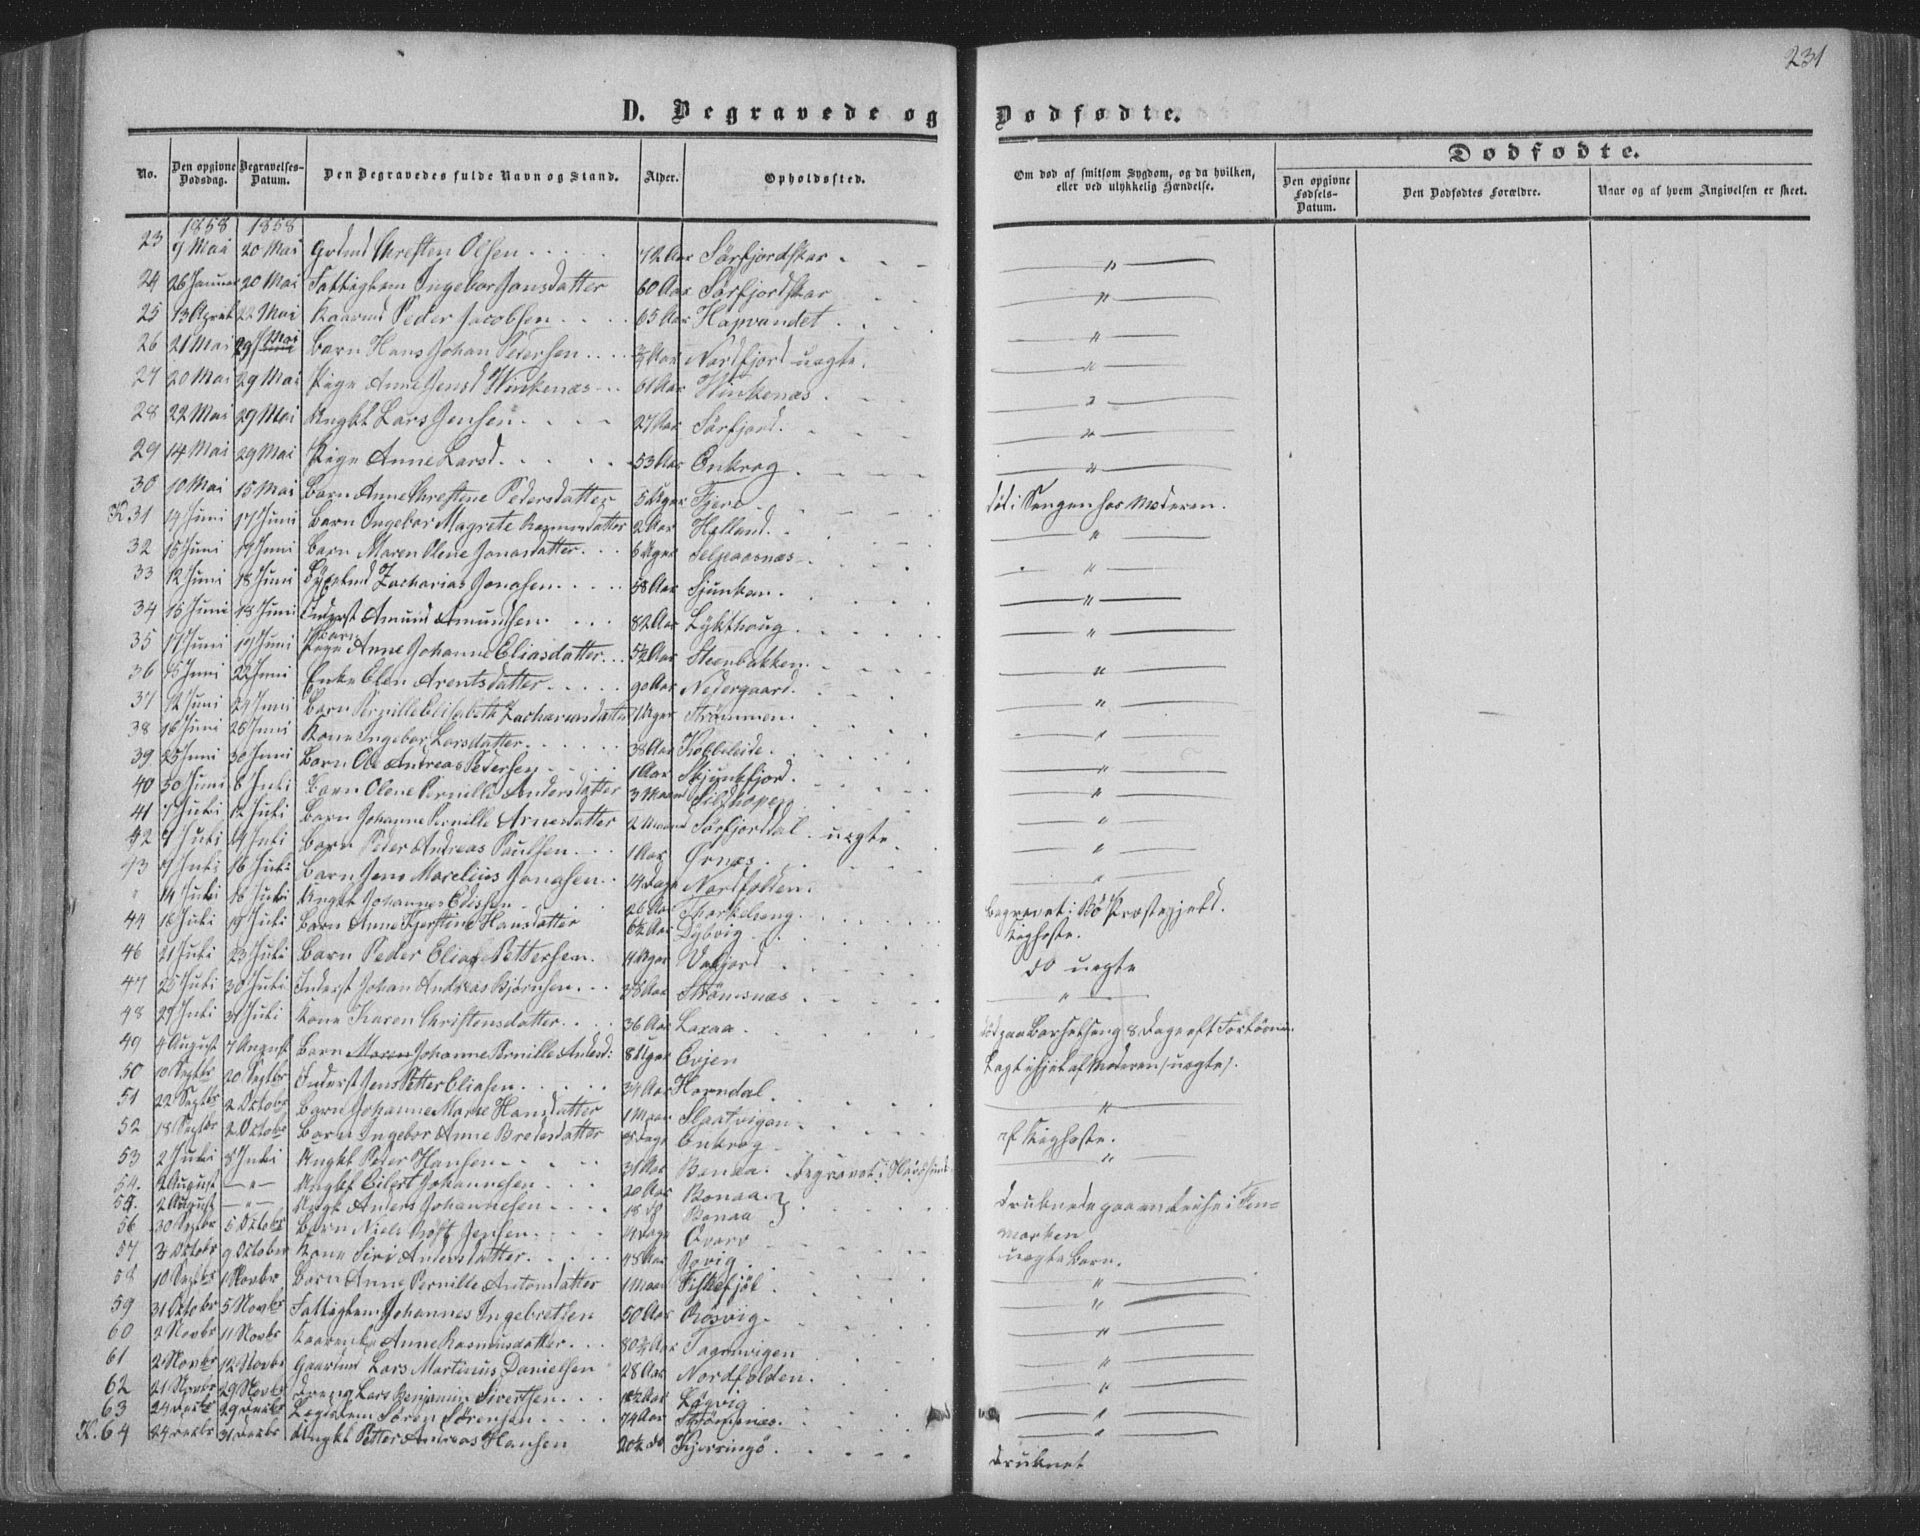 231
D. Begravede og Dødfødte.
Dødfødte.
No. Den opgivne Dødsdag. Begravelses-Datum. Den Begravedes fulde Navn og Stand. Alder. Opholdssted. Om død af smitsom Sygdom, og da hvilken, eller ved ulykkelig Hændelse. Den opgivne Fødsels-Datum. Den Dødfødtes Forældre. Naar og af hvem Angivelsen er skeet.
1858 1858
23 7 Mai 20 Mai Christen Olsen 72 Aar Sørfjordskar "
24 26 Januar 20 Mai Fattiglem Ingebor Jonsdatter 60 Aar Sørfjordskar "
25 13 April 22 Mai Kaarmd Peder Jacobsen 65 Aar Hopvandet "
26 21 Mai 29 Mai Barn Hans Johan Pedersen Aar Nordfjord uægte. "
27 20 Mai 29 Mai Pige Anne Jensd Winkenæs 61 Aar Winkenæs "
28 22 Mai 29 Mai Ungkl Lars Jensen 27 Aar Sørfjord "
29 14 Mai 29 Mai Pige Anne Larsd. 53 Aar Enkrog "
30 10 Mai 15 Mai Barn Anne Christene Pedersdatter 5 Uger Fjere død i Sengen hos Moderen.
K 31 14 Juni 17 Juni Barn Ingebor Magrete Rasmusdatter 2 Aar Helland "
32 15 Juni 17 Juni Barn Maren Olene Jonasdatter 6 Uger Selsaasnæs "
33 12 Juni 18 Juni Zacharias Jonasen 58 Aar Sjunkan "
34 15 Juni 18 Juni Inderst Amund Amundsen 82 Aar Lykthoug "
35 17 Juni 19 Juni Barn Pige Anne Johanne Eliasdatter 5½ Aar Steenbakken "
36 15 Juni 22 Juni Enke Elen Arentsdatter 90 Aar Nedergaard "
37 12 Juni 24 Juni Barn Pernille Elisabeth Zachariasdatter 7 Uger Strømmen "
38 16 Juni 25 Juni Kone Ingebor Larsdatter 38 Aar Kobbeleide "
39 25 Juni 30 Juni Barn Ole Andreas Pedersen 1 Aar Skjunkfjord "
40 30 Juni 8 Juli Barn Olene Pernille Andersdatter 3 Maaned Sildhopen "
41 7 Juli 12 Juli Barn Johanne Pernille Arnesdatter 2 Maaned Sørfjorddal uægte "
42 9 Juli 14 Juli Barn Peder Andreas Paulsen 1 Aar Ørnæs "
43 9 Juli 16 Juli Barn Jens Marelius Jonasen 14 Dage Nordfolden "
" 14 Juli 16 Juli Ungkl Johannes Edissen 26 Aar Thorkelseng begravet i Bø Præstegjeld.
44 16 Juli 19 Juli Barn Anne Kjerstine Hansdatter 6½ Aar Dybvig Kighoste.
46 21 Juli 23 Juli Barn Peder Elias Pettersen 4 Uger Valjord do uægte
47 25 Juli 30 Juli Inderst Johan Andreas Bjørnsen 38 Aar Strømsnæs "
48 27 Juli 31 Juli Kone Karen Christensdatter 36 Aar Laxaa død paa Barselseng 8 Dage eft Forløsnin
49 4 August 7 August Barn Maren Johanne Pernille Andersd: 8 Uger Evjen Lagt ihjel af Moderen (uægte).
50 10 Septbr 20 Septbr Inderst Jens Petter Eliasen 34 Aar Horndal "
51 22 Septbr 2 Octobr Barn Johanne Marie Hansdatter 1 Maan Slaatvigen af Kighoste.
52 18 Septbr 2 Octobr Barn Ingebor Anne Bredesdatter 8 Dage Enkrog "
53 2 Juli 8 Juli Ungkl Peter Hansen 31 Aar Bonaa. begravet i
54. 2 August — " — Ungkl Eilert Johannesen 20 Aar Bonaa. } Druknede paa en Reise i Fin-
55. 2 August — " — Ungk Anders Johannesen 18 do Bonaa marken
56 30 Septbr 5 Octobr Barn Niels Røst Jensen 14 Dage Evero uægte Barn.
57 3 Octobr 9 October Kone Siri Andersdatter 48 Aar Bovig "
58 10 Septbr 1 Novbr Barn Anne Pernille Antonsdatter 1 Maan Fiskefjøl "
59 31 Octobr 5 Novbr Fattiglem Johannes Ingebretsen 50 Aar Røsvig "
60 2 Novbr 11 Novbr Anne Rasmusdatter 80½ Aar Tagenvigen "
61 2 Novbr 12 Novbr Gaardmd Lars Martinus Danielsen 28 Aar Nordfolden "
62 21 Novbr 29 Novbr Dreng Lars Benjamin Sivertsen Aar Løgvig "
63 24 Decbr 29 Decbr Lægdslem Søren Sørensen 74 Aar Strømsnæs "
K. 64 24 Decbr 31 Decbr Ungkl Petter Andreas Hansen 20½ do Kjerringø druknet